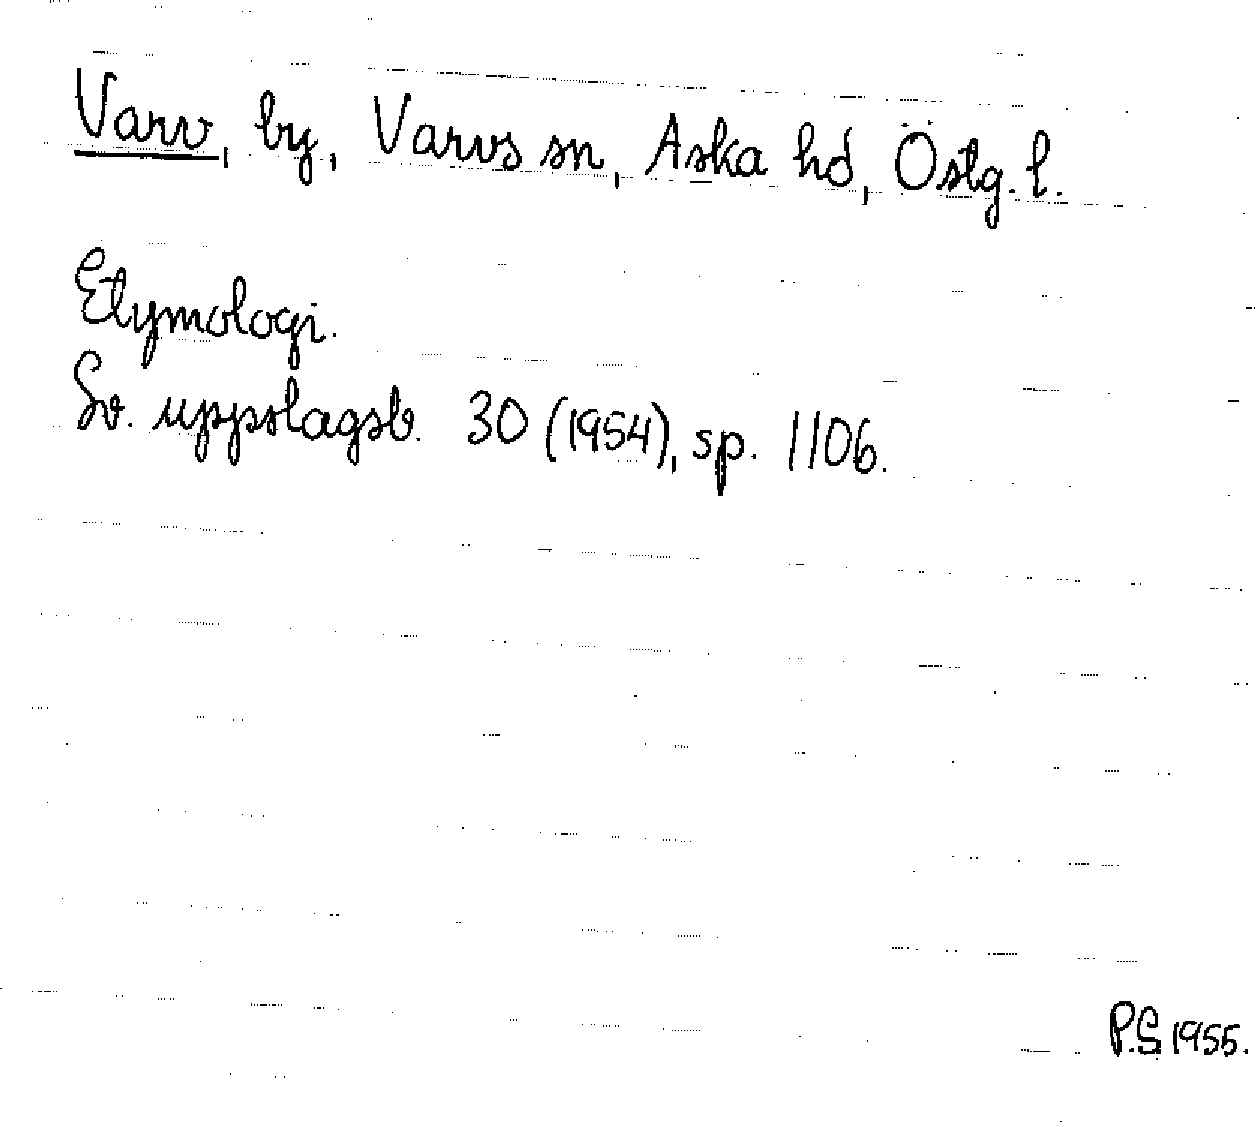 Varv, by, Varvs sn, Aska hd, Östg. l.
Etymologi.
Sv. uppslagsb. 30 (1954), sp. 1106.
P.S 1955.